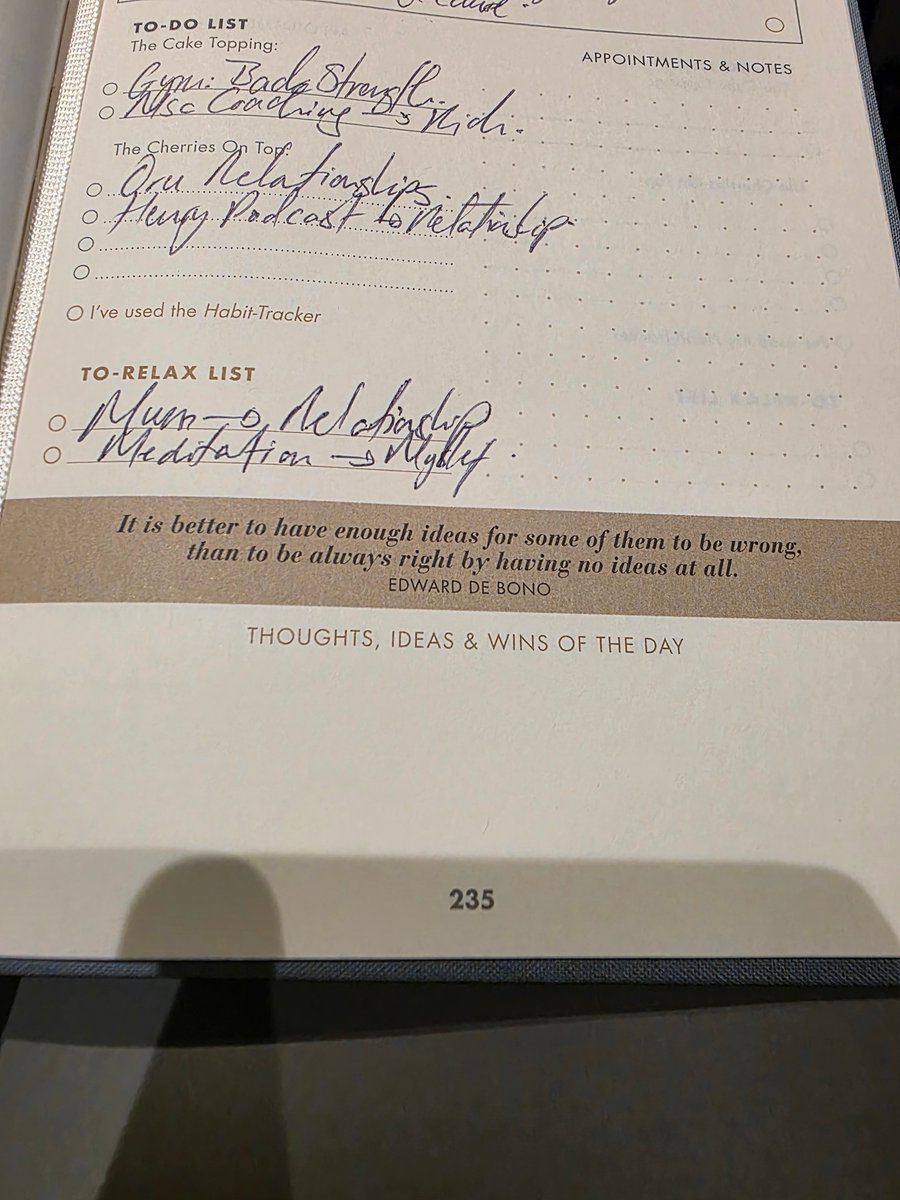 TO-DO LIST
The Cake Topping:
APPOINTMENTS & NOTES
Gym: Back Strength.
Coaching → Rich.
The Cherries On Top:
Relationships
Henry Podcast to Relationship
I've used the Habit-Tracker
TO-RELAX LIST
Mum → Relationship
Meditation → Myself.
It is better to have enough ideas for some of them to be wrong,
than to be always right by having no ideas at all.
EDWARD DE BONO
THOUGHTS, IDEAS & WINS OF THE DAY
235